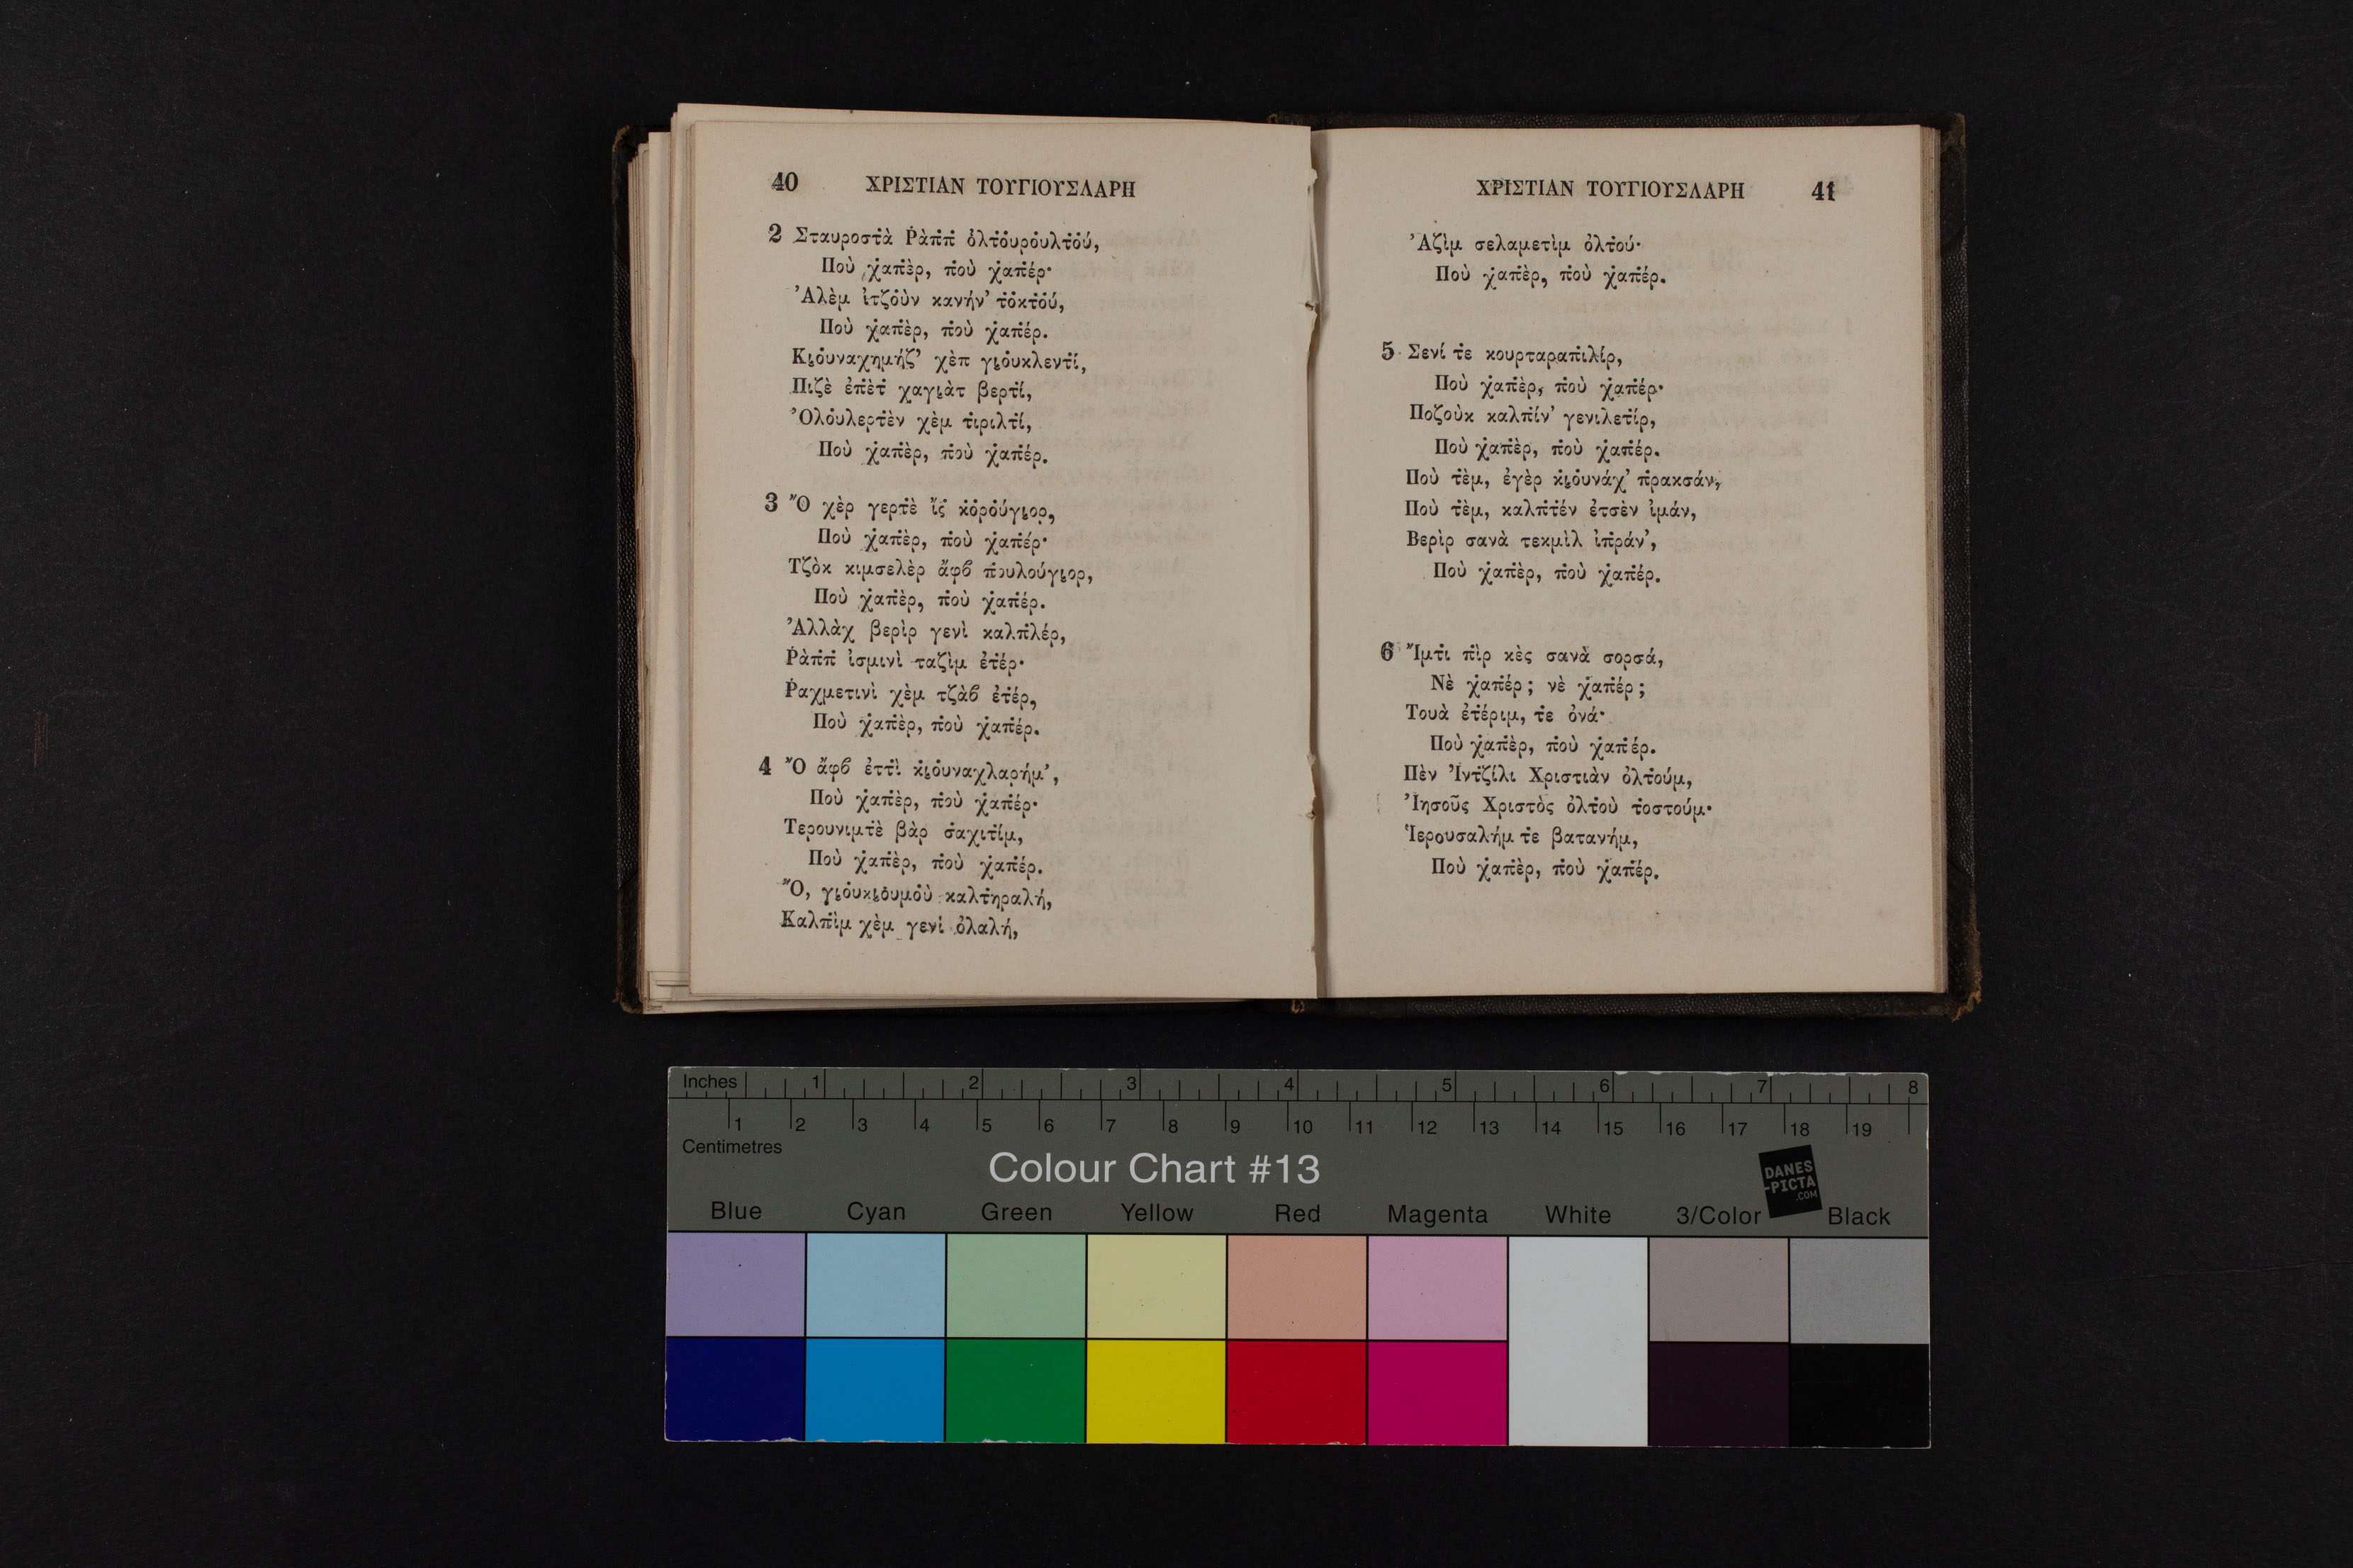 40 ΧΡΙΣΤΙΑΝ ΤΟΥΓΙΟΥΣΛΑΡΗ
2 Σταυροστ̇ὰ Ῥὰπ̇π̇ ὀλτ̇ο̇υρο̇υλτ̇ο̇ύ,
Π̇οὺ χ̇απ̇ὲρ, π̇οὺ χ̇απ̇έρ·
Ἀλὲμ ἰτζο̇ὺν κανήν’ τ̇ο̇κτ̇ο̇ύ,
Π̇οὺ χ̇απ̇ὲρ, π̇οὺ χ̇απ̇έρ.
Κι̨ο̇υναχημήζ’ χὲπ γι̨ο̇υκλεντ̇ί,
Π̇ιζὲ ἐπ̇ὲτ̇ χαγι̨ὰτ βερτ̇ί,
Ὀλο̇υλερτ̇ὲν χὲμ τ̇ιριλτ̇ί,
Π̇οὺ χ̇απ̇ὲρ, π̇οὺ χ̇απ̇έρ.
3 Ὂ χὲρ γερτ̇ὲ ἲς̇ κ̇ο̇ρο̇ύγι̨ορ,
Π̇οὺ χ̇απ̇ὲρ, π̇οὺ χ̇απ̇έρ·
Τζὸκ κιμσελὲρ ἄφϐ π̇ουλούγι̨ορ,
Π̇οὺ χ̇απ̇ὲρ, π̇οὺ χ̇απ̇έρ.
Ἀλλὰχ βερὶρ γενὶ καλπ̇λέρ,
Ῥὰπ̇π̇ ἰσμινὶ ταζὶμ ἐτ̇έρ·
Ῥαχμετινὶ χὲμ τζὰϐ ἐτ̇έρ,
Π̇οὺ χ̇απ̇ὲρ, π̇οὺ χ̇απ̇έρ.
4 Ὂ ἄφϐ ἐττ̇ὶ κ̇ι̨ο̇υναχλαρήμ’,
Π̇οὺ χ̇απ̇ὲρ, π̇οὺ χ̇απ̇έρ·
Τ̇ερουνιμτ̇ὲ βὰρ σ̇αχιτ̇ίμ,
Π̇οὺ χ̇απ̇ὲρ, π̇οὺ χ̇απ̇έρ.
Ὂ, γι̨ο̇υκι̨ο̇υμο̇ὺ καλτ̇ηραλή,
Καλπ̇ὶμ χὲμ γενὶ ὀλαλή,
ΧΡΙΣΤΙΑΝ ΤΟΥΓΙΟΥΣΛΑΡΗ 41
Ἀζὶμ σελαμετὶμ ὀλτ̇ού·
Π̇οὺ χ̇απ̇ὲρ, π̇οὺ χ̇απ̇έρ.
5 Σενί τ̇ε κουρταραπ̇ιλίρ,
Π̇οὺ χ̇απ̇ὲρ, π̇οὺ χ̇απ̇έρ·
Π̇οζοὺκ καλπ̇ίν’ γενιλετ̇ίρ,
Π̇οὺ χ̇απ̇ὲρ, π̇οὺ χ̇απ̇έρ.
Π̇οὺ τ̇ὲμ, ἐγὲρ κ̇ι̨ο̇υνάχ’ π̇ρακσάν,
Π̇οὺ τ̇ὲμ, καλπ̇τ̇έν ἐτσὲν ἰμάν,
Βερὶρ σανὰ τεκμὶλ ἰπ̇ράν’,
Π̇οὺ χ̇απ̇ὲρ, π̇οὺ χ̇απ̇έρ.
6 Ἲμτ̇ι π̇ὶρ κὲς σανὰ σορσά,
Νὲ χ̇απ̇έρ; νὲ χ̇απ̇έρ;
Τουὰ ἐτ̇έριμ, τ̇ε ὀνά·
Π̇οὺ χ̇απ̇ὲρ, π̇οὺ χ̇απ̇έρ.
Π̇ὲν Ἰντ̇ζίλι Χριστιὰν ὀλτ̇ούμ,
Ἰησοῦς Χριστὸς ὀλτ̇οὺ τ̇οστούμ·
Ἱερουσαλήμ τ̇ε βατανήμ,
Π̇οὺ χ̇απ̇ὲρ, π̇οὺ χ̇απ̇έρ.
Inches 1 2 3 4 5 6 7 8
1 2 3 4 5 6 7 8 9 10 11 12 13 14 15 16 17 18 19
Centimetres
Colour Chart #13
DANES
-PICTA
.COM
Blue Cyan Green Yellow Red Magenta White 3/Color Black